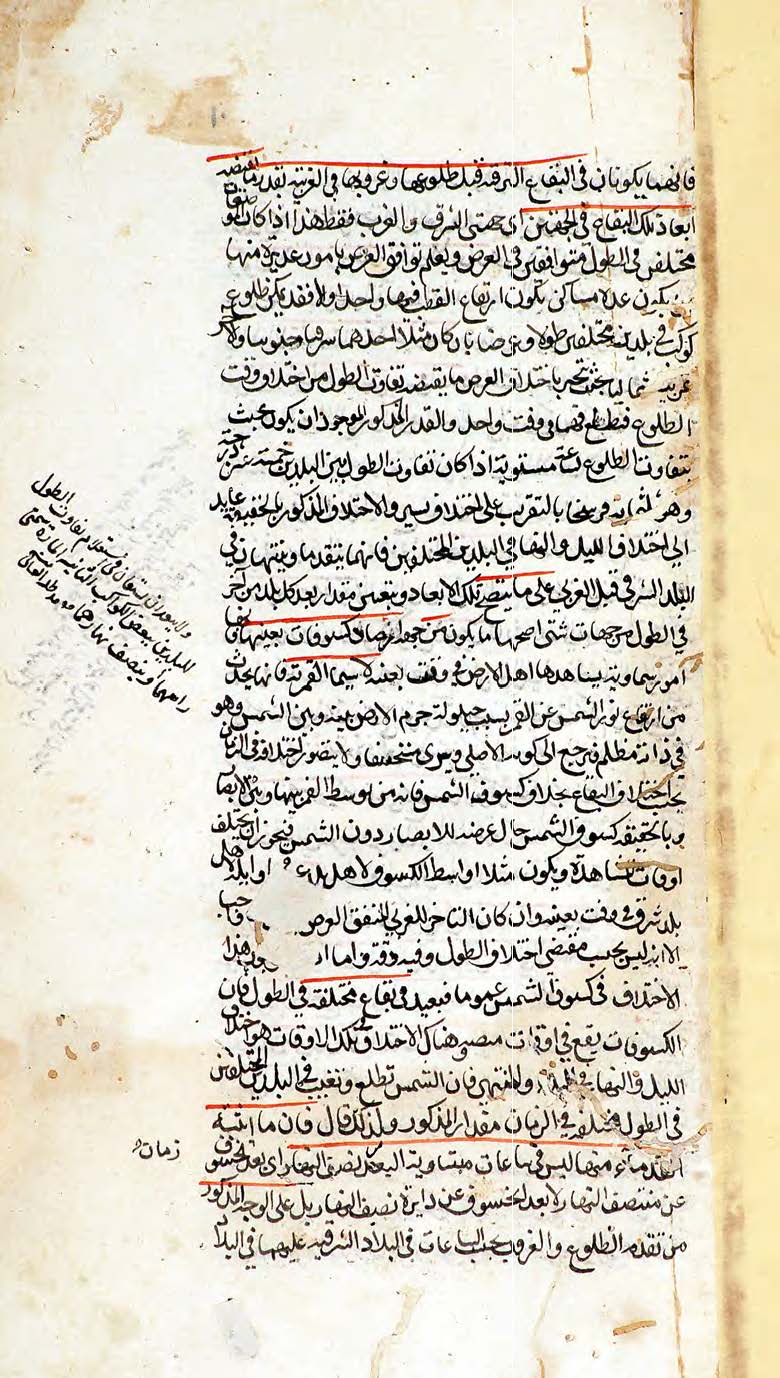 فانهما يكونان في البقاع الشرقية قبل طلوعها وغروبها في الغربية بقدر ما يقتضيه
ابعاد تلك البقاع في الجهتين اى جهتى الشرق والغرب فقط هذا اذا كان
مختلفين في الطول متوافقين في العرض ويعلم توافق العرض بامور عديدة منها
ان يكون عدة مساكن يكون ارتفاع القطب فيها واحدا ولا فقد يكون طلوع
كوكب في بلدين مختلفين طولا وعرضا بان كان مثلا احدهما شرقيا جنوبيا والاخر
غربيا شماليا بحيث ينجبر باختلاف العرض ما يقتضيه تفاوت الطول من اختلاف وقت
الطلوع فيطلع فيهما في وقت واحد والقدر المذكور الموجود ان يكون بحيث
يتفاوت الطلوع لساعة مستوية اذا كان تفاوت الطول بين البلدين خمسة عشر درجة
وهو ثلثماية فرسخا بالتقريب على اختلاف يسير والاختلاف المذكور بالحقيقة عايد
الى اختلاف الليل والنهار في البلدين المختلفين فانهما يتقدما وينتهيان في
البلد الشرقي قبل الغربي على ما يقتضيه تلك الابعاد ويتعين مقدار بعد كل بلد من آخر
في الطول من جهات شتى اصحها ما يكون من جهة ارصاد كسوفات بعينها فانها
امور سماوية يشاهدها اهل الارض في وقت بعينه لا سيما القمرية فانها يحدث
من ارتفاع نور الشمس عن القمر بسبب حيلولة جرم الارض بينه وبين الشمس وهو
في ذاته مظلم فيرجع الى لونه الاصلي ويرى منخسفا ولا يتصور اختلاف في الزمان
بحسب اختلاف البقاع بخلاف كسوف الشمس فانه من توسط القمر بينها وبين الابصار
وبالحقيقة كسوف الشمس حال عرضه للابصار دون الشمس فيجوز ان يختلف
اوقات مشاهدة ويكون مثلا اواسط الكسوف لاهل بلد او ايله لاهل
بلد شرقي في وقت بعينه وان كان التاخر للغربي المتفق العرض واجب
الا انه ليس بحسب مقتضى اختلاف الطول وفيه دقة واما بعد هذا
الاختلاف في كسوف الشمس عموما فبعيد في بقاع مختلفة في الطول فان
الكسوفات يقع في اوقات وهناك الاختلاف تلك الاوقات هو اختلاف
الليل والنهار في فان الشمس تطلع وتغيب في البلدين المختلفين
في الطول مختلفة في الزمان مقدار المذكور ولذلك قال فان ما اثبته
القدماء منها ليس في ساعات متساوية البعد لنصف النهار اى بعد الخسوف
عن منتصف النهار لا بعد الخسوف عن دايرة نصف النهار بل على الوجه المذكور
من تقدم الطلوع والغروب بحسب الساعات في البلاد الشرقية عليهما في البلاد
ولا يبعد ان يستعان في استعلام تفاوت الطول
للبلدين ببعض الكواكب الثابتة المارة بسمتى
راسهما وبنصف نهارهما
زمان